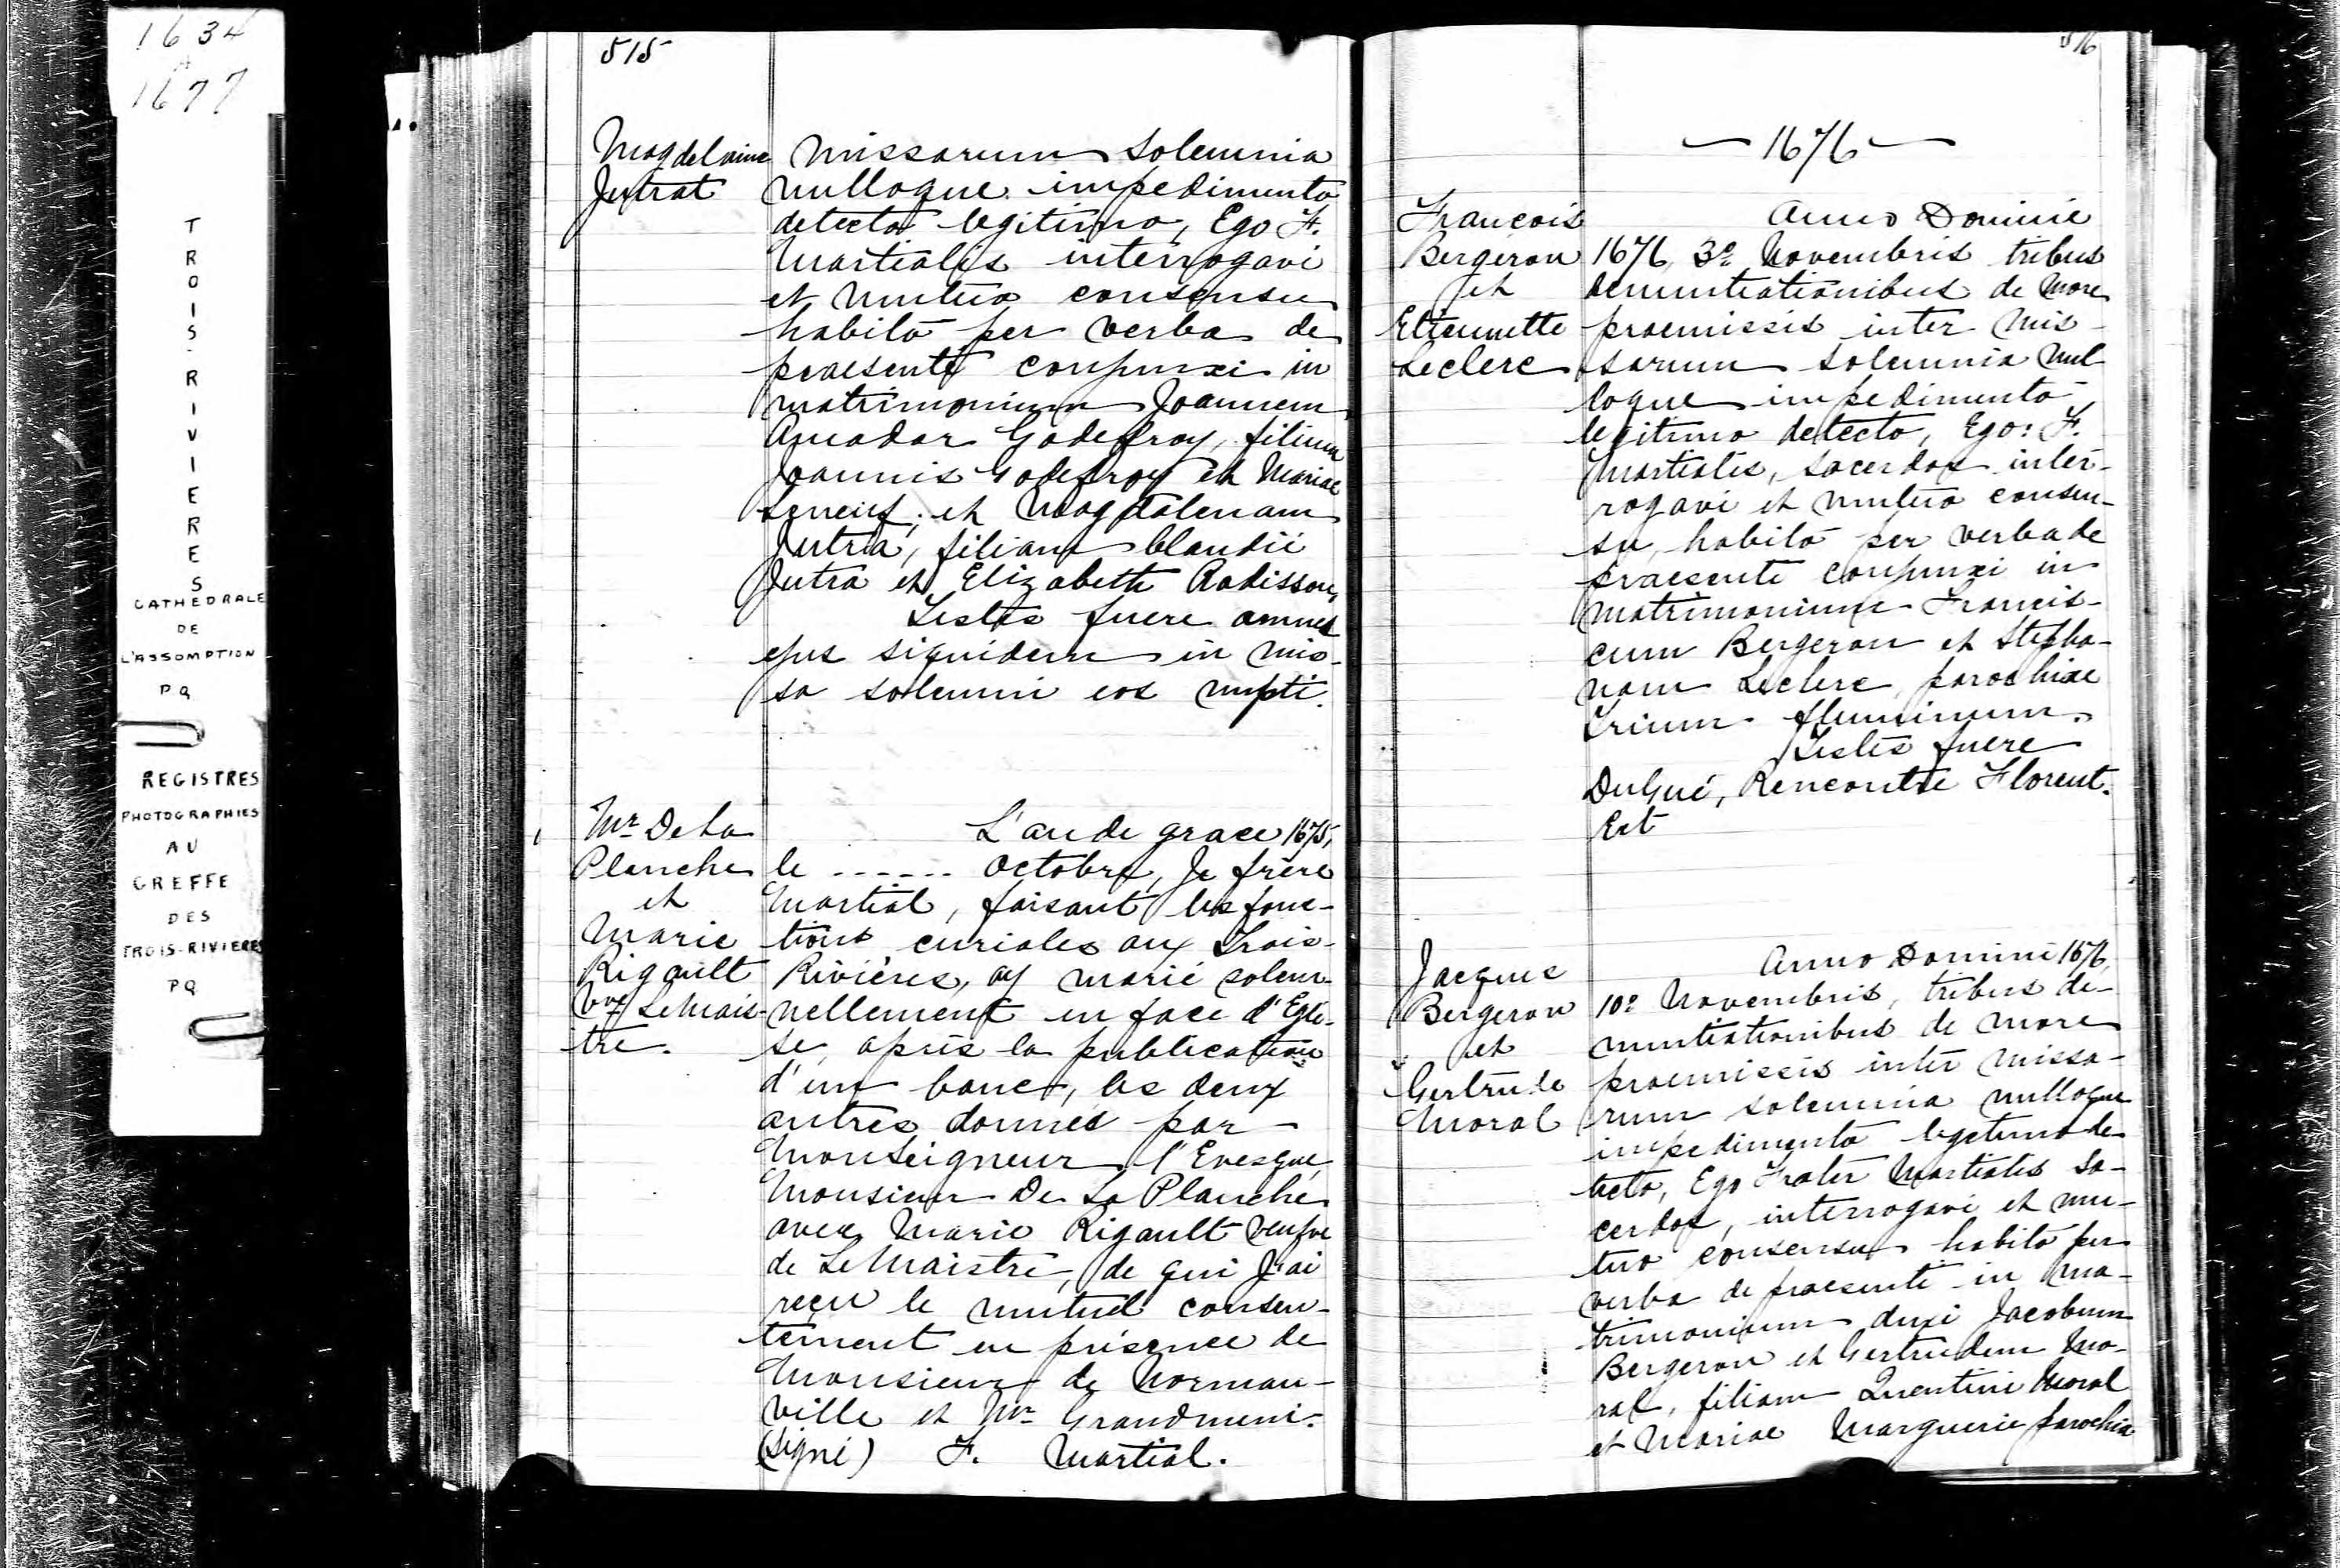 1634
A
1677
TROIS-RIVIERES
CATHEDRALE
DE
L'ASSOMPTION
PQ
REGISTRES
PHOTOGRAPHIES
AU
GREFFE
DES
TROIS-RIVIERES
PQ
515
Magdelaine
Jutrat
missarum solemnia
nulloque impedimento
detecto legitimo, Ego F.
Martialis interrogavi
et mutuo consensu
habito per verba de
praesente conjunxi in
matrimonium Joannem
Amador Godefroy, filium
Joannis Godefroy et Mariae
Leneuf; et Magdalenam
Jutra, filiam Claudii
Jutra et Elizabeth Radisson,
Testes fuere omnes
ejus siquidem in mis-
sa solemni eos nupti.
Mr De La
Planche
et
Marie
Rigault
Vve LeMais-
tre.
L'an de grace 1675,
le ...... Octobre, Je frère
Martial, faisant les fonc-
tions curiales aux Trois-
Rivières, ay marié solem-
nellement en face d'Egli-
se, après la publication
d'un banc, les deux
autres donnés par
Monseigneur l'Evesque,
Monsieur De La Planche
avec Marie Rigault veufve
de LeMaistre, de qui J'ai
reçu le mutuel consen-
tement en présence de
Monsieur de Norman-
ville et Mr Grandmeni.
(signé) F. Martial.
516
— 1676 —
François
Bergeron
et
Etiennette
Leclerc
Anno Domini
1676, 3o Novembris tribus
denuntiationibus de more
praemissis inter mis-
sarum solemnia nul
loque impedimento
legitimo detecto, Ego: F.
Martialis, sacerdos inter-
rogavi et mutuo consen-
su, habito per verba de
praesente conjunxi in
matrimonium Francis-
cum Bergeron et Stepha-
nam Leclerc, parochiae
Trium fluminum.
Testes fuere
DuGué, Rencontre Florent.
Ext
Jacques
Bergeron
et
Gertrude
Moral
Anno Domini 1676,
10o Novembris, tribus de-
nuntiationibus de more
praemissis inter missa-
rum solemnia nulloque
impedimento legetimo de
tecto, Ego Frater Martialis Sa-
cerdos, interrogavi et mu-
tuo consensu habito per
verba de praesente in ma-
trimonium duxi Jacobum
Bergeron et Gertrudem Mo-
ral, filiam Quentini Moral
et Mariae Marguerie parochia